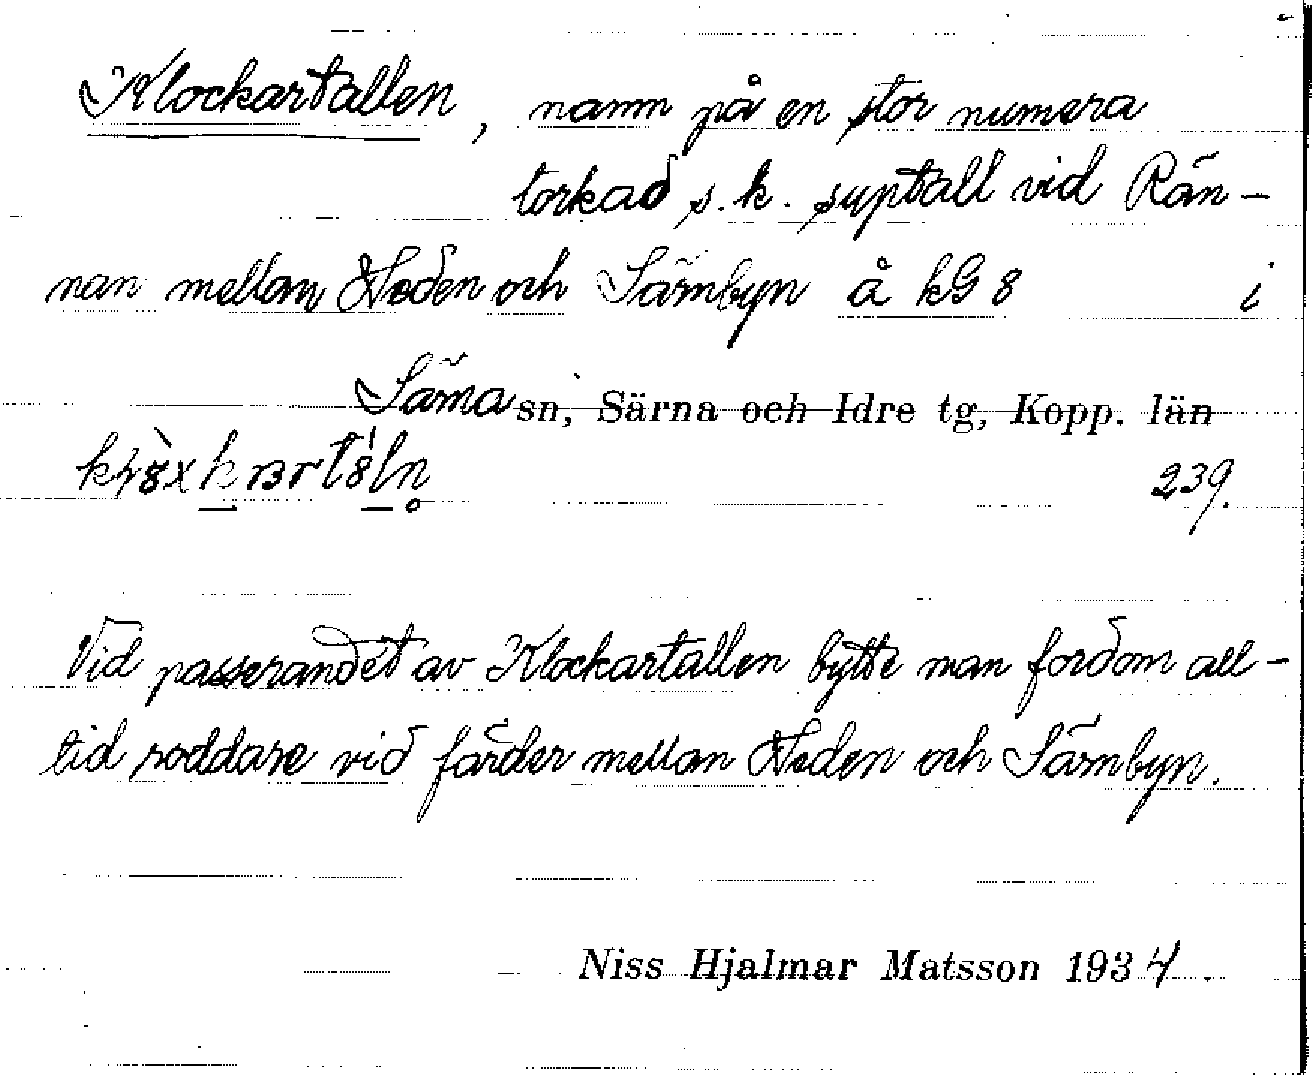 Klockartallen, namn på en stor numera
torkad s.k. suptall vid Rän-
nan mellan Heden och Särnbyn å kG 8 i
Särna sn, Särna och Idre tg, Kopp. län
239.
Vid passerandet av Klockartallen bytte man fordom all-
tid roddare vid färder mellan Heden och Särnbyn.
Niss Hjalmar Matsson 1934.